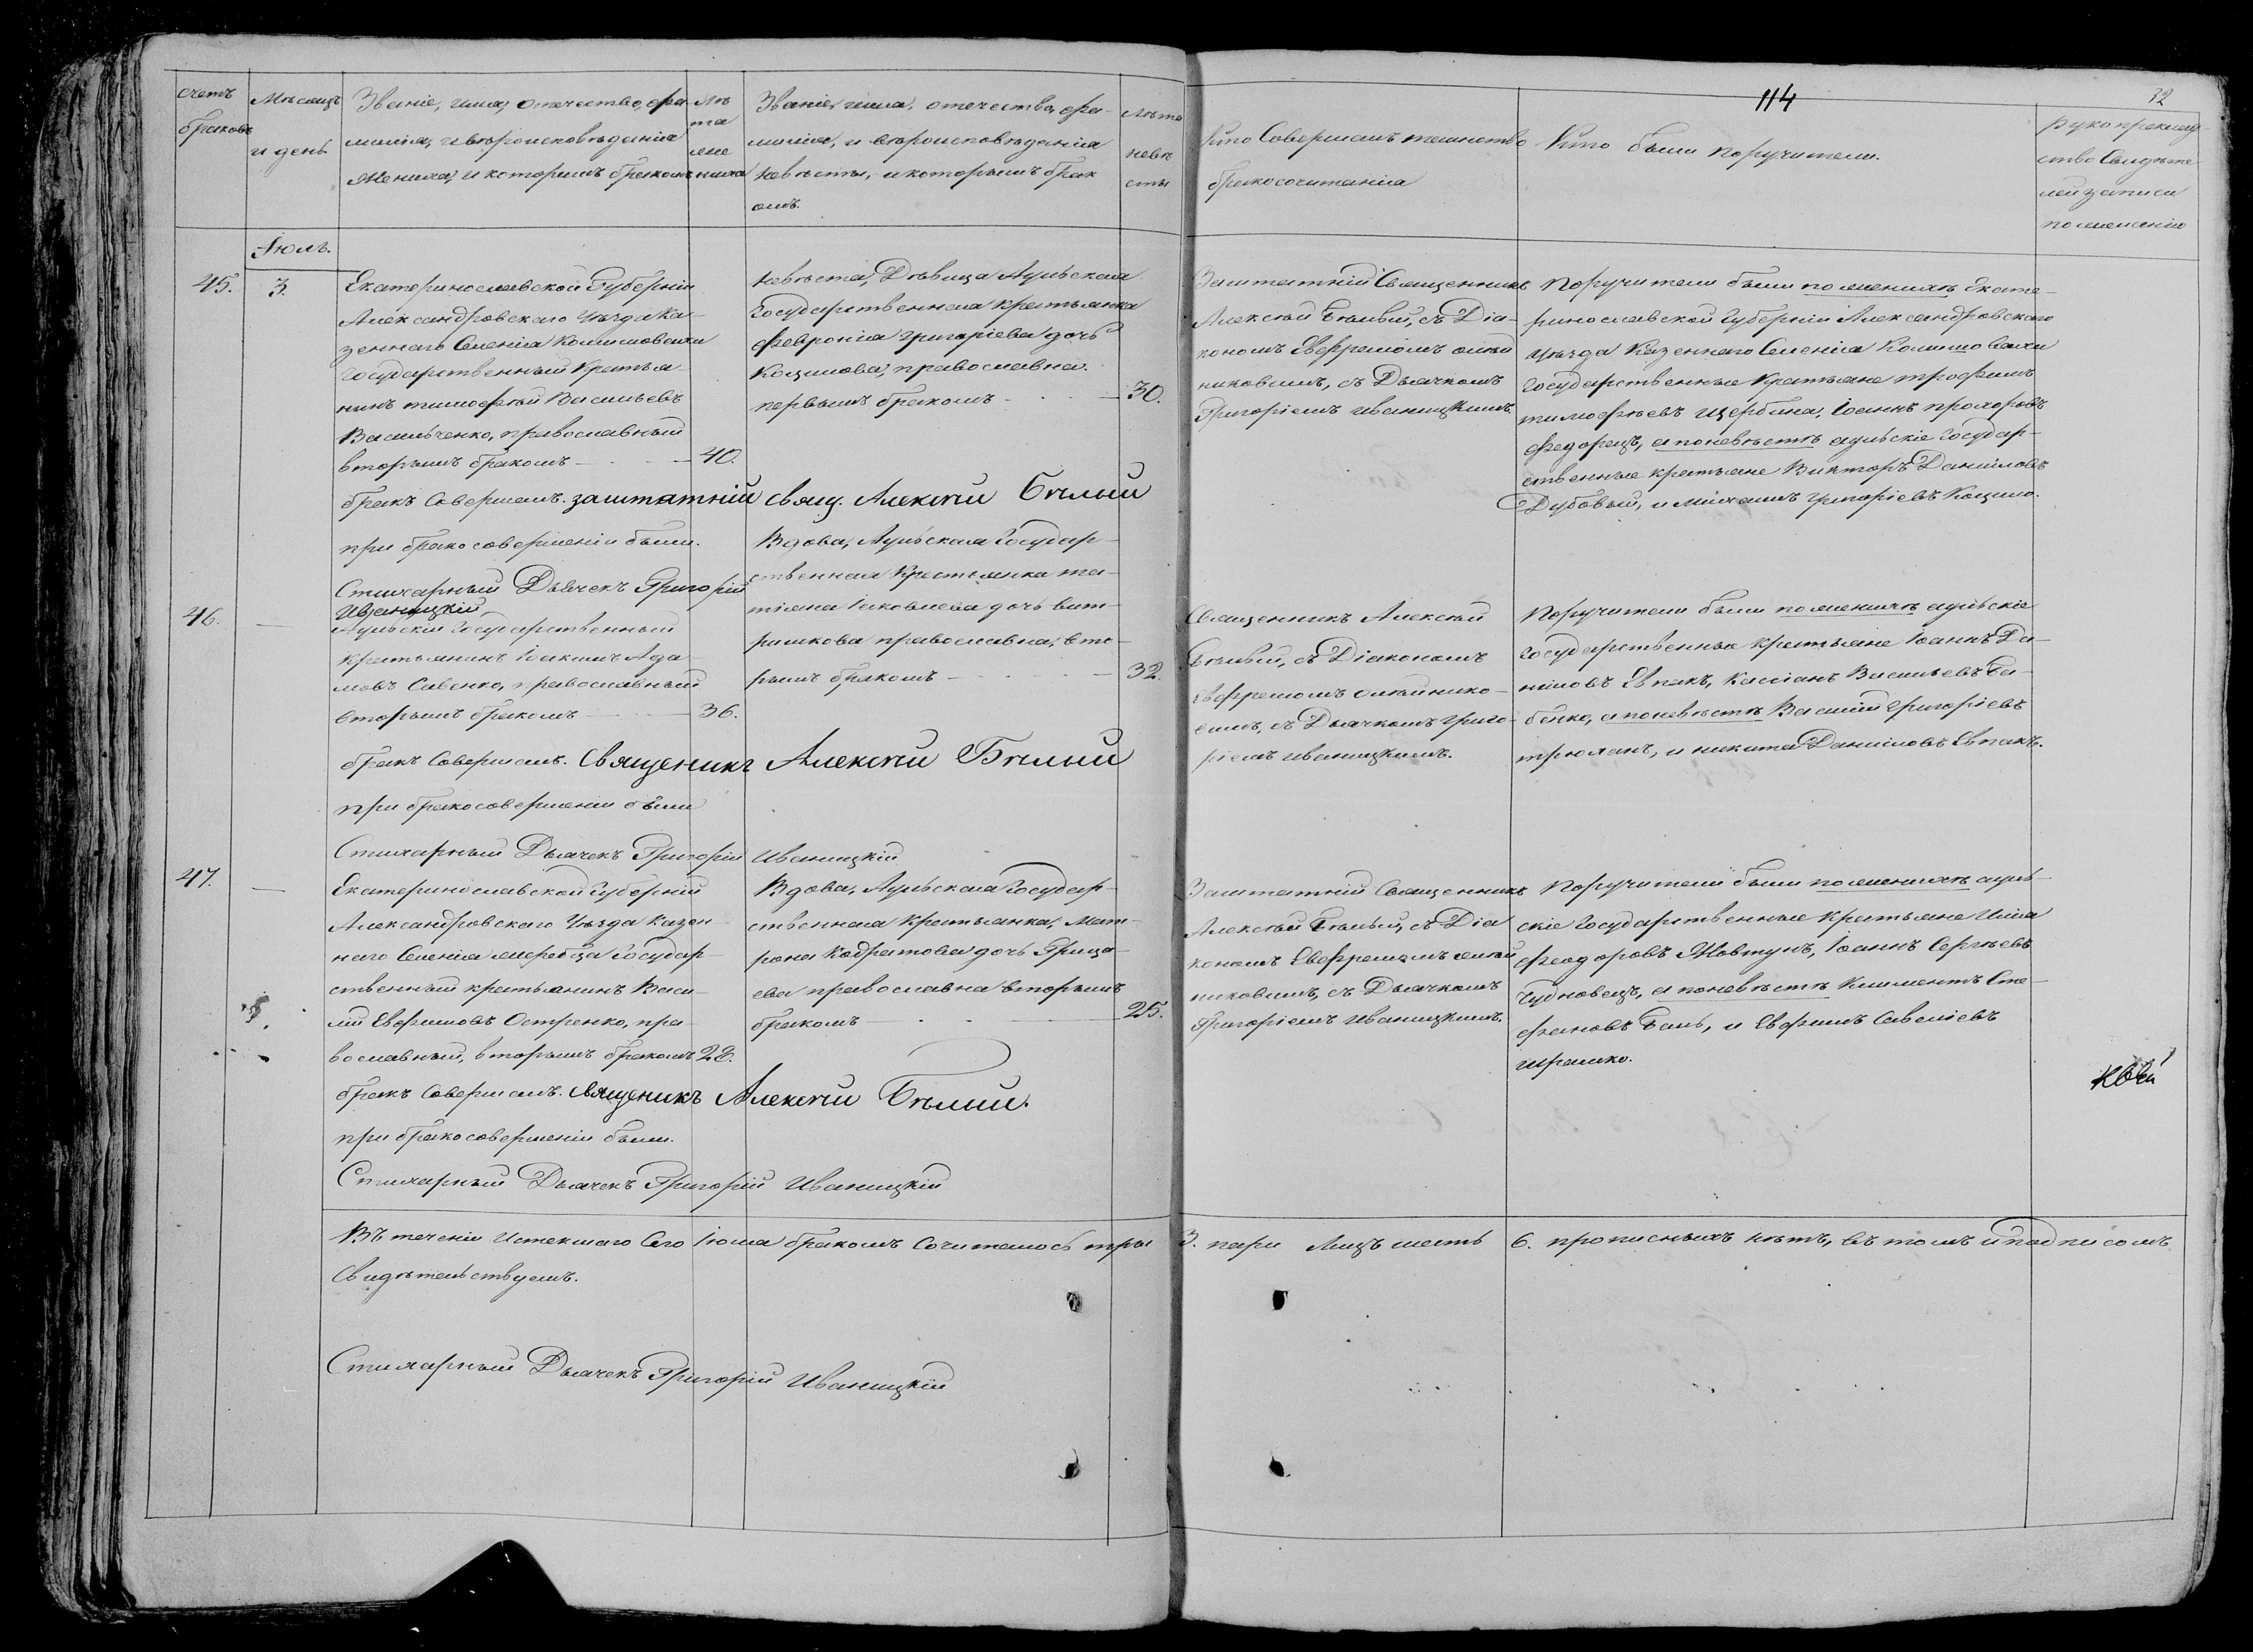 114
32
счетъ
браковъ
Мѣсяцъ
и день
Званіе, имя, отечество, фа-
милія, и вѣроисповѣданія
жениха, и которымъ бракомъ
Лѣ
та
же
ниха
Званіе, имя, отечество, фа-
милія, и вѣроисповѣданія
невѣсты, и которымъ брак
омъ.
Лѣта
невѣ
сты
Кто Совершалъ таинство
бракосочитанія
Кто были поручители.
рукоприклад
ство Свидѣте
лей записи
по желанію
Іюль.
45.
3.
Екатеринославской Губерніи
Александровскаго Уѣзда Ка-
зеннаго Селенія Комишовахи
Государственный Крестья-
нинъ тимофѣй Васильевъ
Васильченко, православный
вторымъ бракомъ
40.
невѣста, Дѣвица Аульская
Государственная крестьянка
февронія григоріева дочь
Коцилова, православна.
первымъ бракомъ
30.
Заштатній Священникъ
Алексѣй Бѣлый, съ Діа-
кономъ Евфремомъ олѣй
никовымъ, съ Дьячкомъ
Григоріемъ иваницкимъ.
Поручители были по женихѣ Екате-
ринославской Губерніи Александровскаго
уѣзда Казеннаго Селенія Комишовахи
Государственные Крестьяне трофимъ
тимофѣевъ щербина, Іоаннъ прохоровъ
федорецъ, а по невѣстѣ аульскіе Государ-
ственные крестьяне Викторъ Даниловъ
Дубовый, и михаилъ григоріевъ Коцило.
бракъ Совершалъ. заштатній свящ. Алексѣй Бѣлый
при бракосовершеніи были.
Стихарный Дьячекъ Григорій
Иваницкій
46.
Аульскій Государственный
крестьянинъ Іоакимъ Ада-
мовъ Савенко, православный
вторымъ бракомъ
36.
Вдова, Аульская Государ-
ственная Крестьянка та-
тіяна Іаковлева дочь
православна, вто-
рымъ бракомъ
32.
Священникъ Алексѣй
Бѣлый, съ Діакономъ
Евфремомъ олѣйнико-
вымъ, съ Дьячкомъ григо-
ріемъ иваницкимъ.
Поручители были по женихѣ аульскіе
Государственные крестьяне Іоаннъ Да-
ниловъ Евпакъ, Кассіанъ Васильевъ Ба-
бенко, а по невѣстѣ Василій григоріевъ
трюханъ, и никита Даниловъ Евпакъ.
бракъ Совершалъ. Священикъ Алексѣй Бѣлый
при бракосовершеніи были
Стихарный Дьячекъ Григорій Иваницкій
47.
Екатеринославской Губерніи
Александровскаго Уѣзда Казен-
наго Селенія жеребца Государ-
ственный крестьянинъ Васи-
лій Евфимовъ Остренко, пра-
вославный, вторымъ бракомъ
28.
Вдова, Аульская Государ-
ственная крестьянка, Мат-
рона Кодратова дочь Грица-
ева православна вторымъ
бракомъ
25.
Заштатній Священникъ
Алексѣй Бѣлый, съ Діа
кономъ Евфремомъ олѣй
никовымъ, съ Дьячкомъ
Григоріемъ Иваницкимъ.
Поручители были по женихѣ ауль-
скіе Государственные крестьяне Илія
феодоровъ Жовтунъ, Іоаннъ Сергѣевъ
Чудновецъ, а по невѣстѣ Климентъ Сте-
фановъ Баль, и Евфимъ Савеліевъ
ирашко.
бракъ Совершалъ. Священикъ Алексѣй Бѣлый.
при бракосовершеніи были.
Стихарный Дьячекъ Григорій Иваницкій
Въ теченіи Истекшаго Сего Іюля бракомъ Сочиталось тры 3. пари Лицъ шесть 6. прописныхъ нѣтъ, въ томъ и подписомъ
Свидѣтельствуемъ.
Стихарный Дьячекъ Григорій Иваницкій